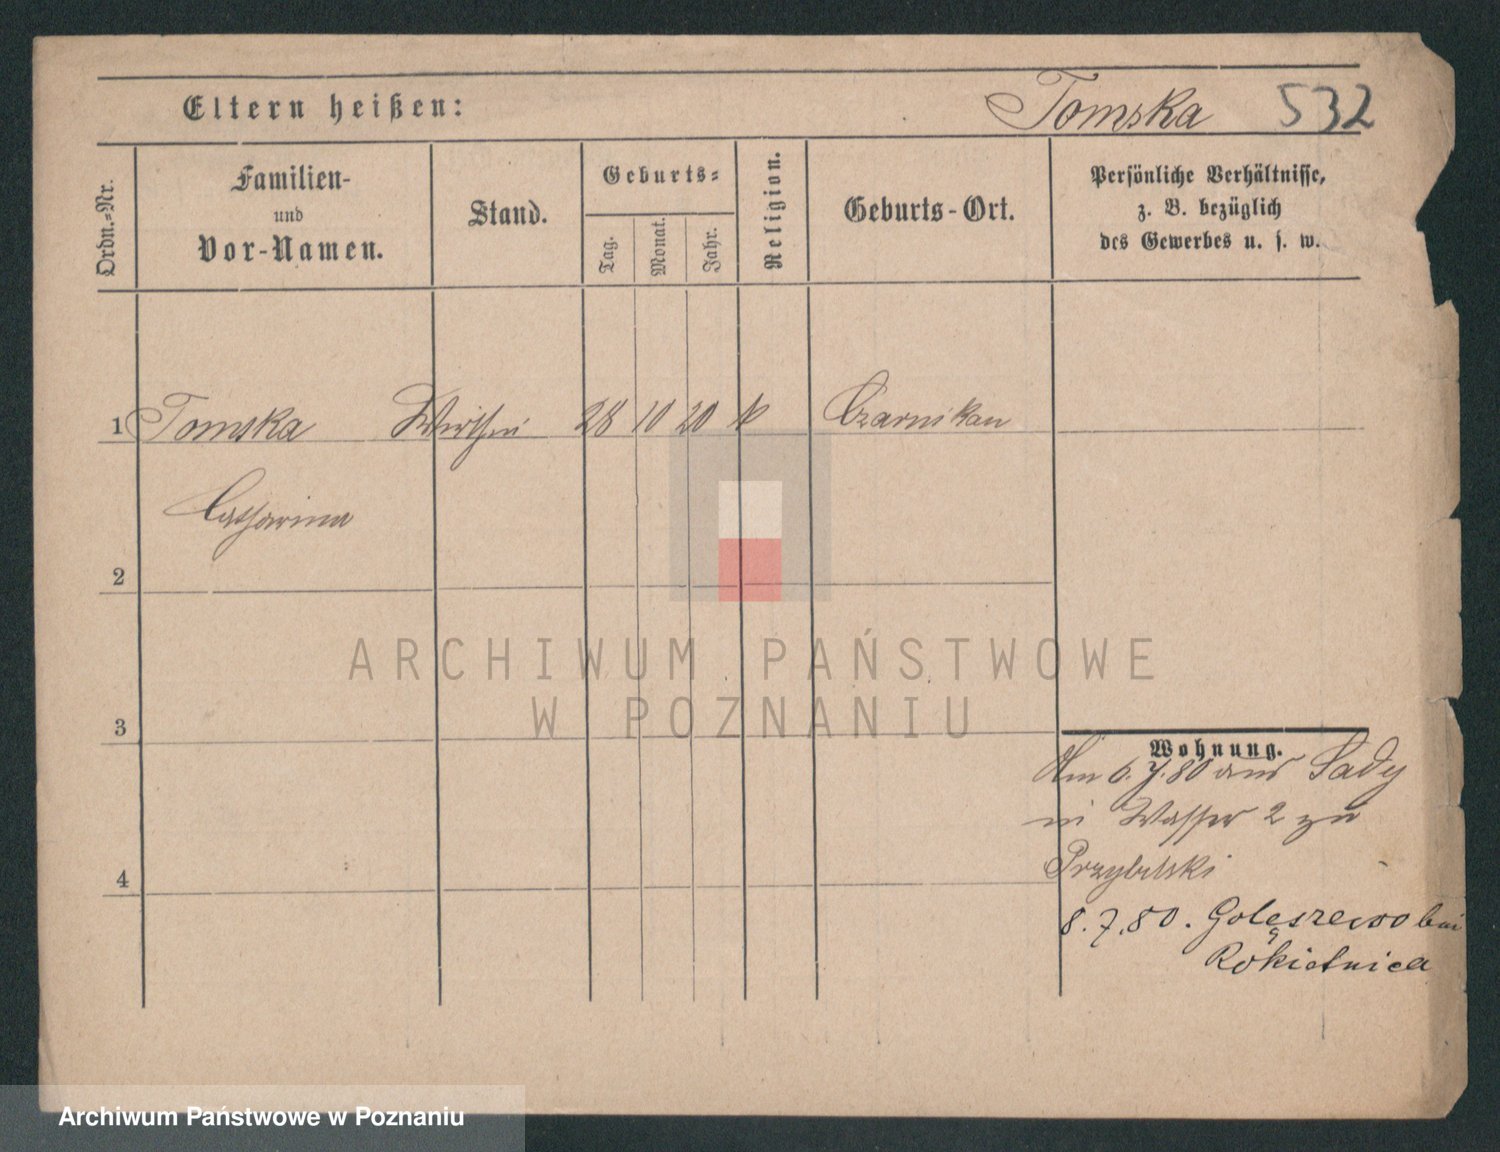 Eltern heißen: Tomska 532
Ordn.-Nr.
Familien-
und
Vor-Namen.
Stand.
Geburts-
Tag.
Monat.
Jahr.
Religion.
Geburts-Ort.
Persönliche Verhältnisse,
z. B. bezüglich
des Gewerbes u. s. w.
1 Tomska Wirthin 28 10 20 k Czarnikau
Catharina
2
3
4
Wohnung.
Am 6.7.80 aus Sady
in Wasser 2 zu
Przybilski
8.7.80. Golęszewo bei
Rokietnica
ARCHIWUM PAŃSTWOWE
W POZNANIU
Archiwum Państwowe w Poznaniu